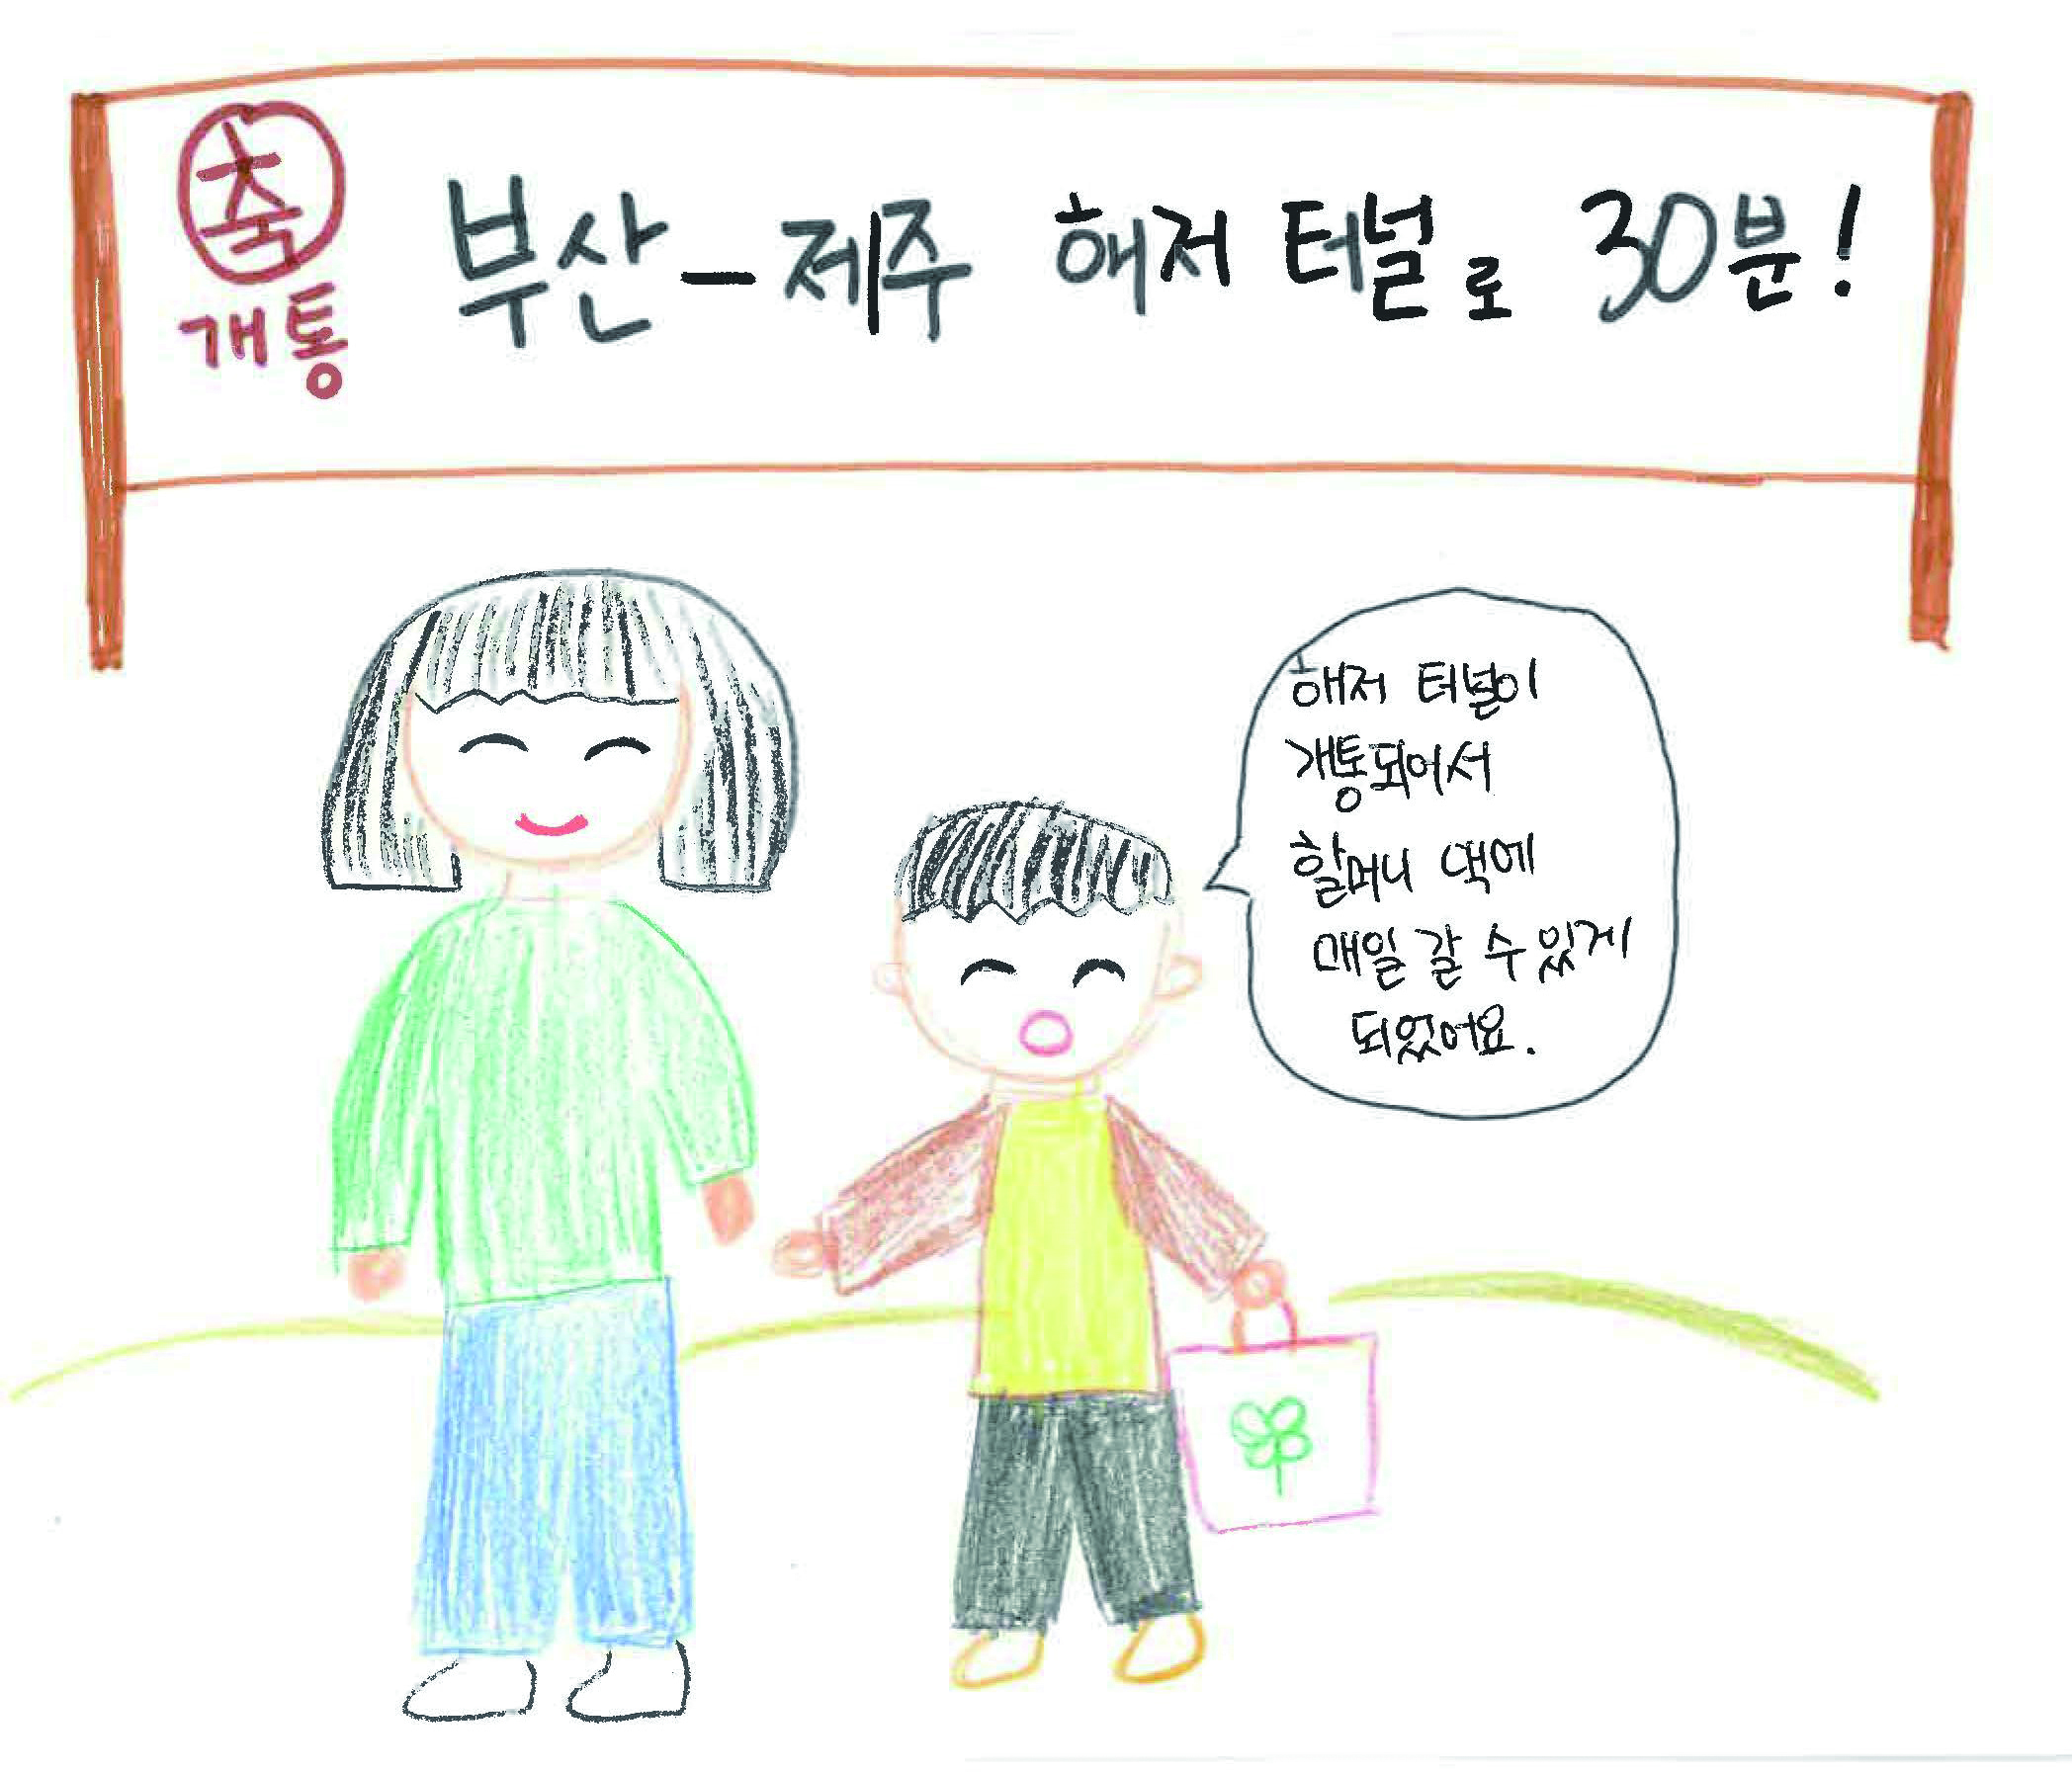 축
개통
부산-제주 해저 터널로 30분!
해저 터널이
개통되어서
할머니 댁에
매일 갈 수 있게
되었어요.